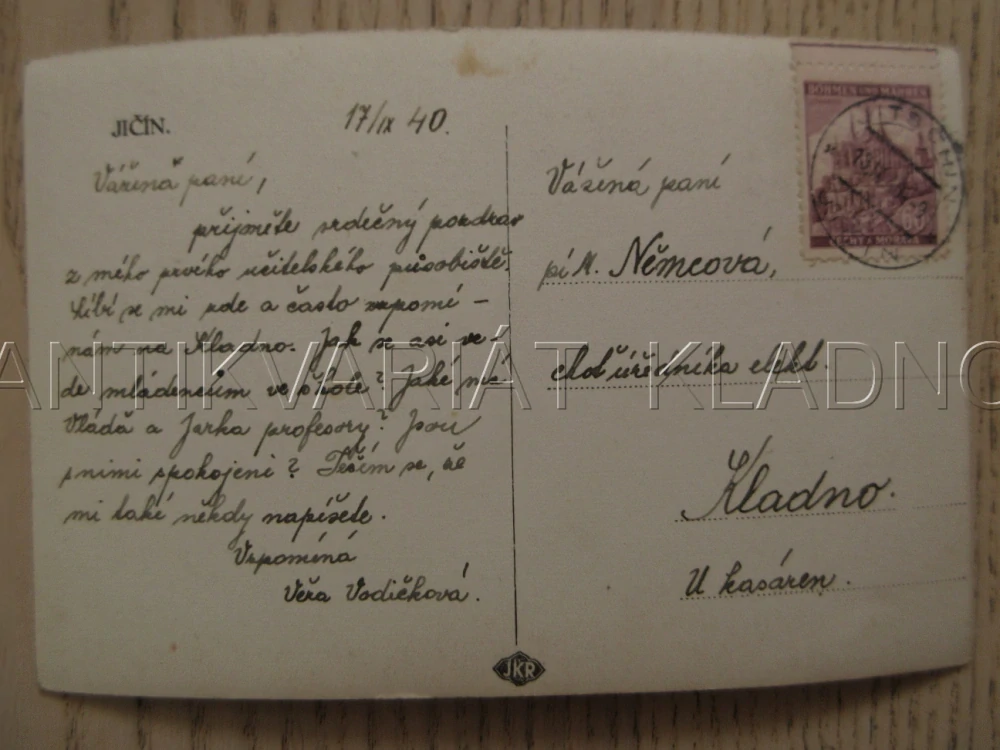 JIČÍN.
17/IX 40.
Vážená paní,
přijměte srdečný pozdrav
z mého prvího učitelského působiště.
Líbí se mi zde a často vzpomí-
nám na Kladno. Jak se asi ve-
de mládencům ve škole? Jaké má
Vláďa a Jarka profesory? Jsou
s nimi spokojeni? Těším se, že
mi také někdy napíšete.
Vzpomíná
Věra Vodičková.
JKR
BÖHMEN UND MÄHREN
ČECHY A MORAVA
60
Vážená paní
pí M. Němcová,
choť úředníka elekt.
Kladno.
U kasáren.
ANTIKVARIÁT KLADNO